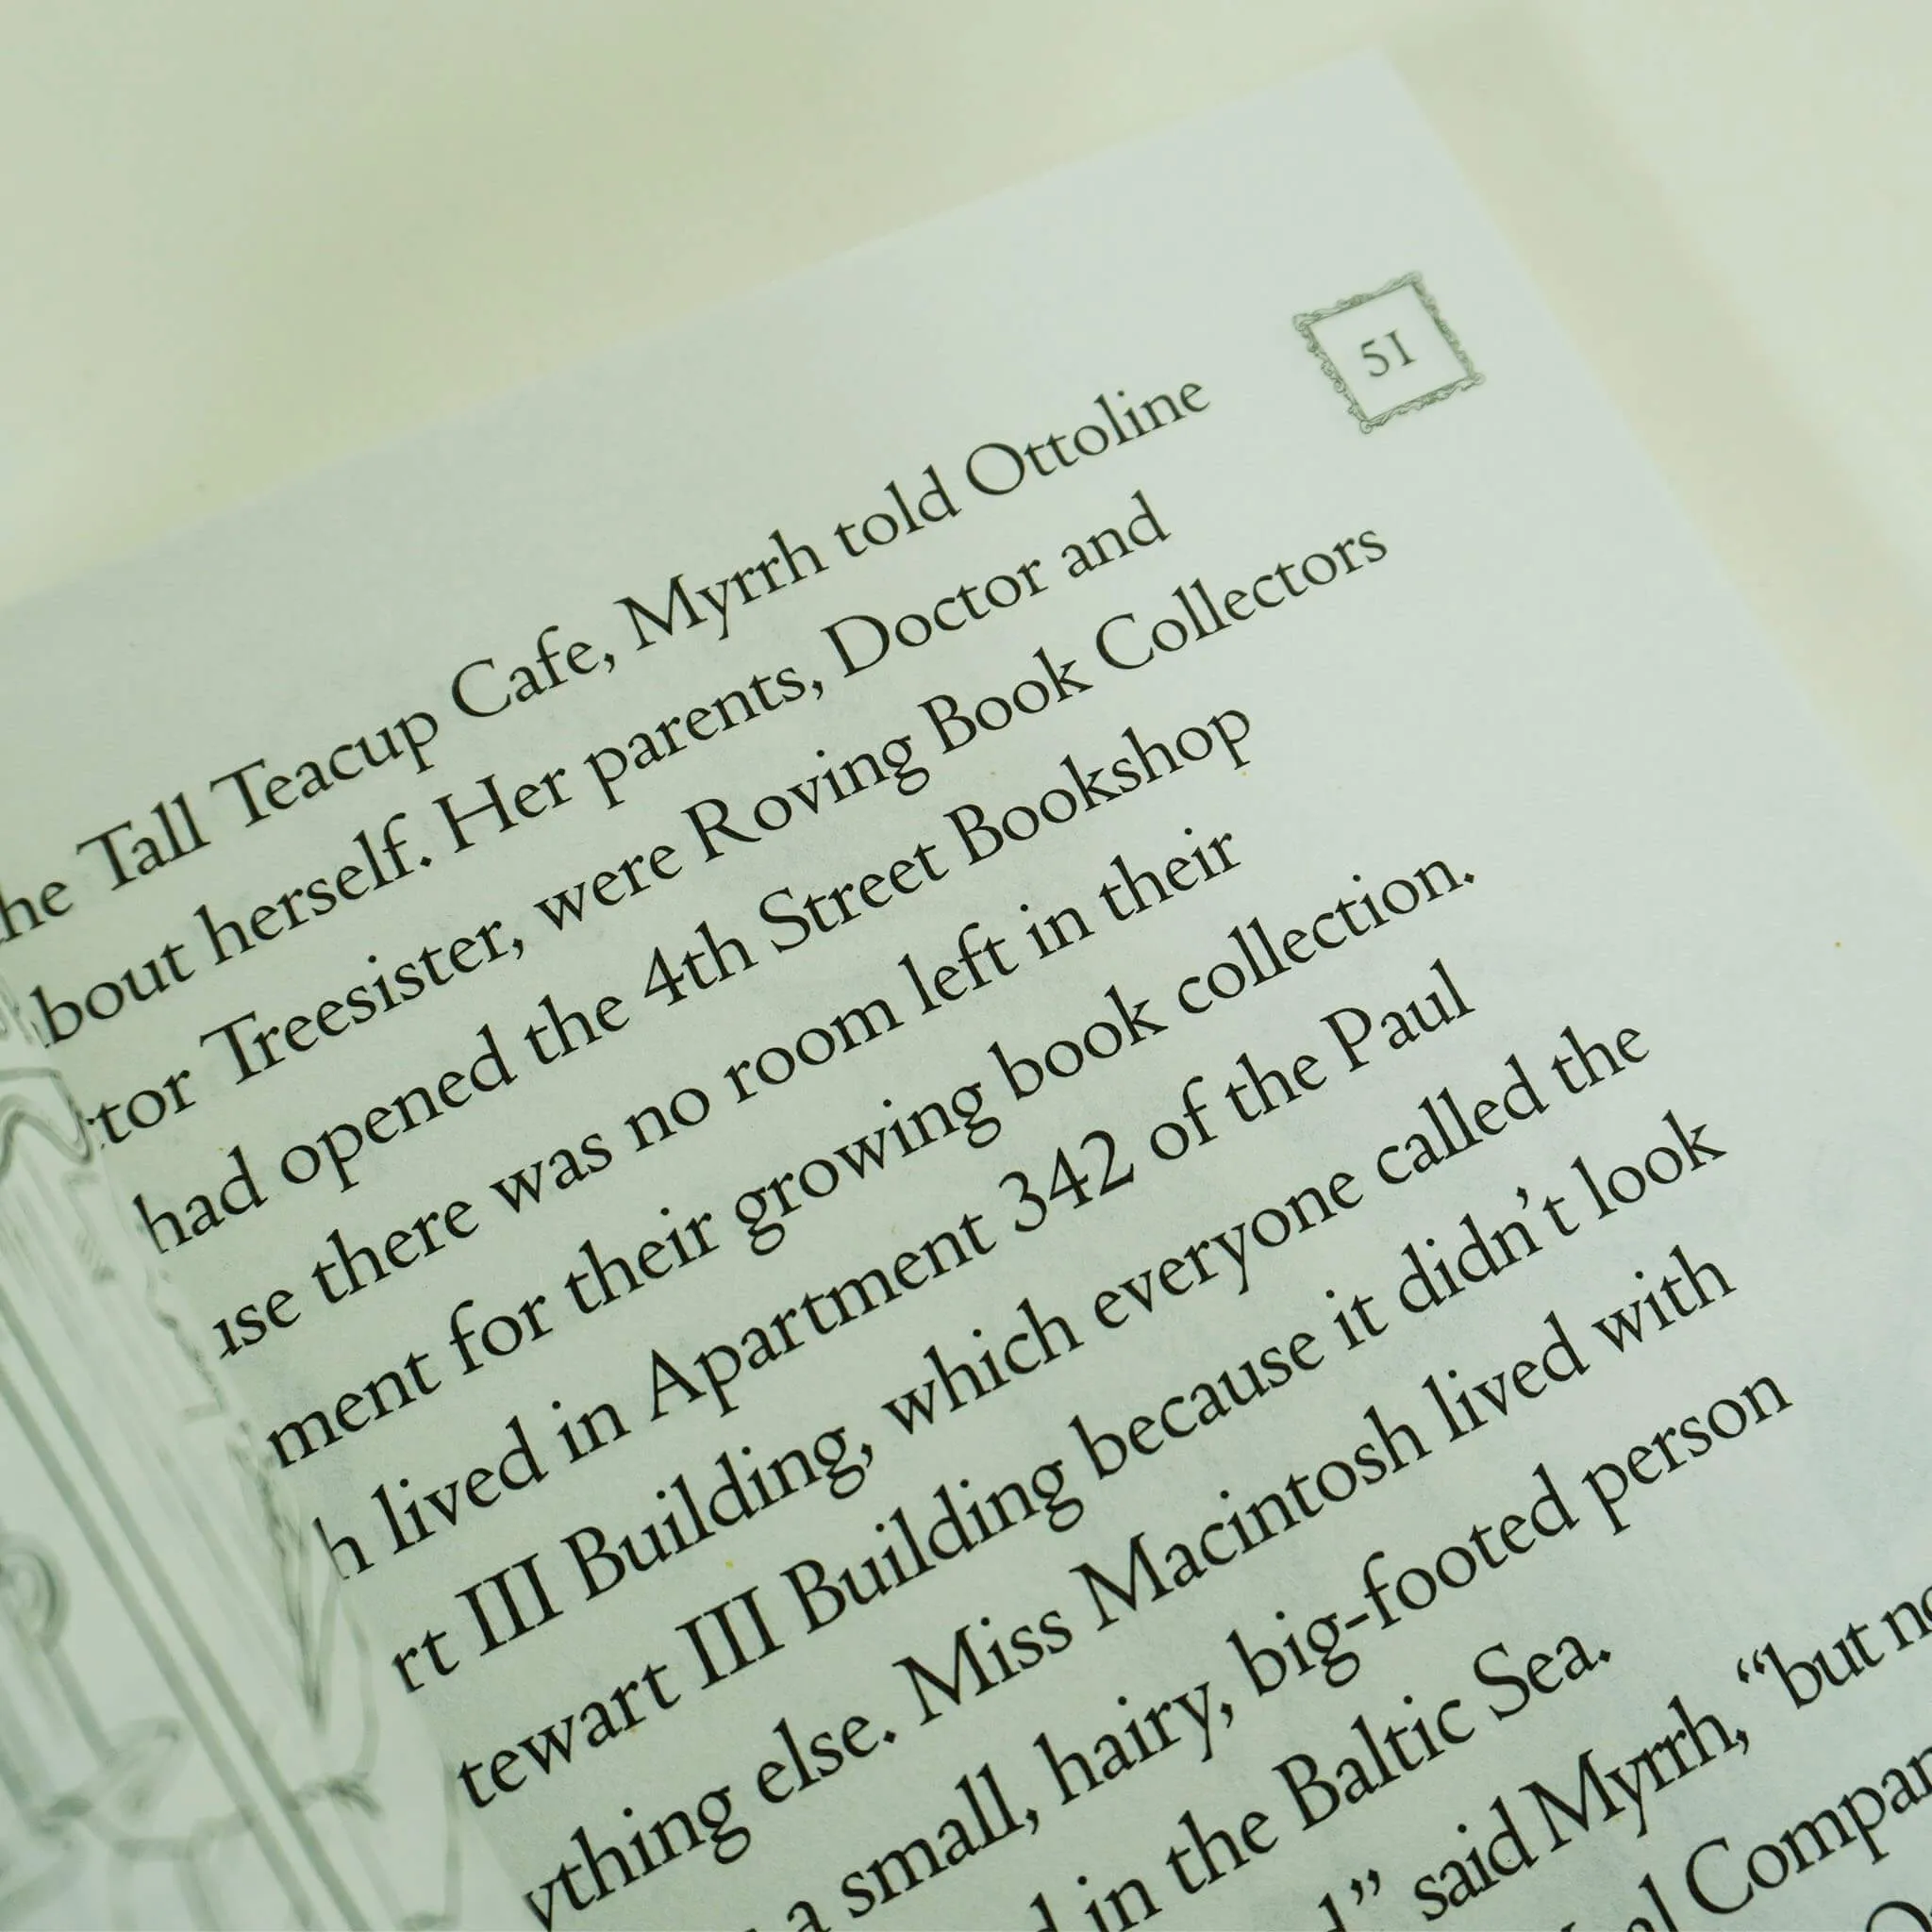 51
he Tall Teacup Cafe, Myrrh told Ottoline
bout herself. Her parents, Doctor and
tor Treesister, were Roving Book Collectors
had opened the 4th Street Bookshop
ise there was no room left in their
ment for their growing book collection.
h lived in Apartment 342 of the Paul
rt III Building, which everyone called the
tewart III Building because it didn't look
ything else. Miss Macintosh lived with
a small, hairy, big-footed person
d in the Baltic Sea.
d” said Myrrh, “but no
al Compan